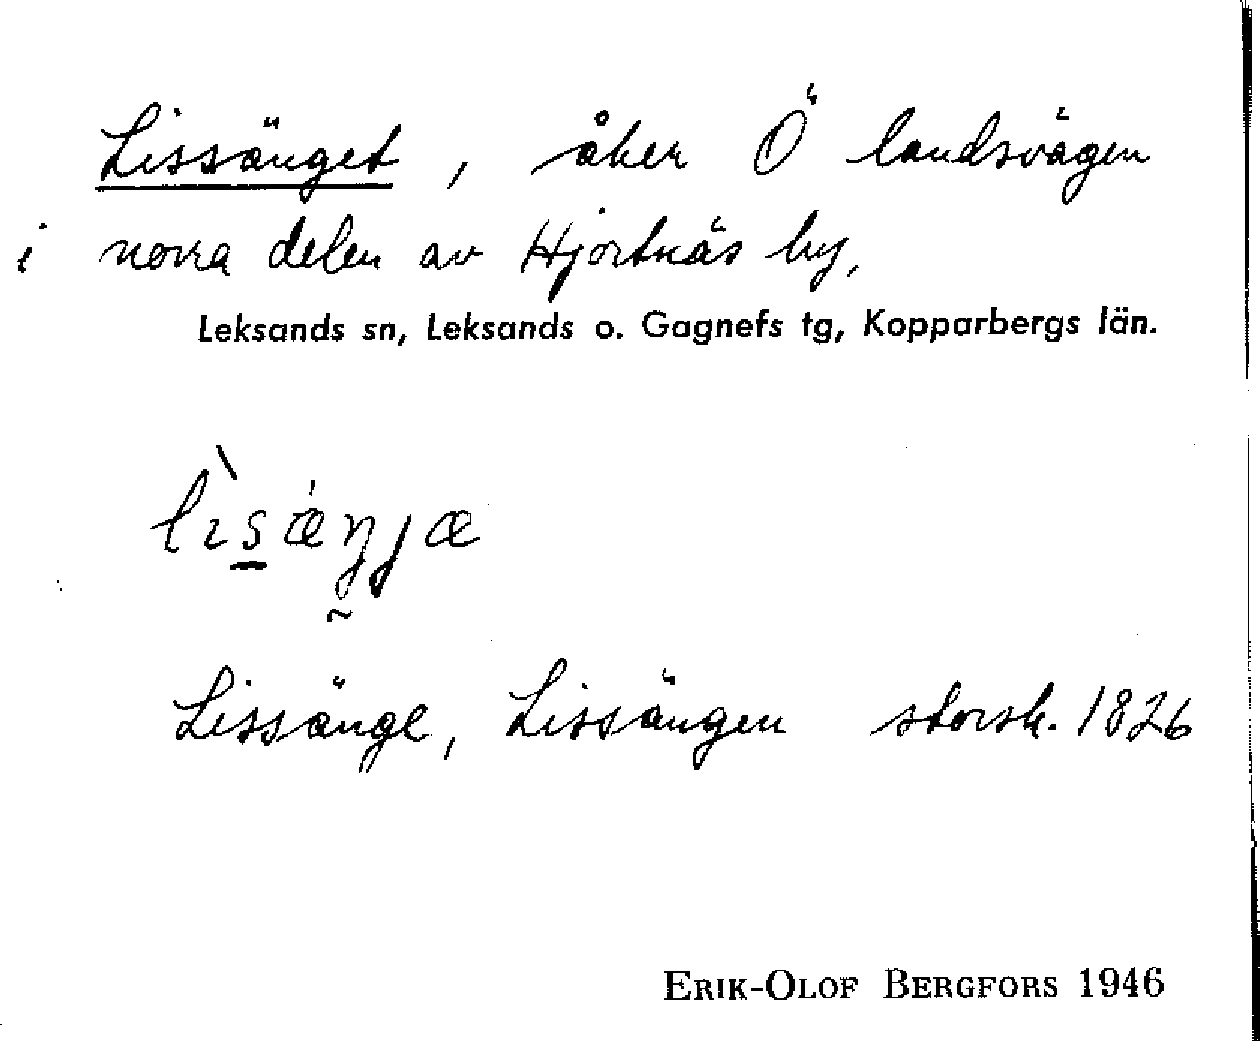 Lissänget, åker Ö landsvägen
i norra delen av Hjortnäs by,
Leksands sn, Leksands o. Gagnefs tg, Kopparbergs län.
lìsæŋjæ
Lissänge, Lissängen storsk. 1826
ERIK-OLOF BERGFORS 1946